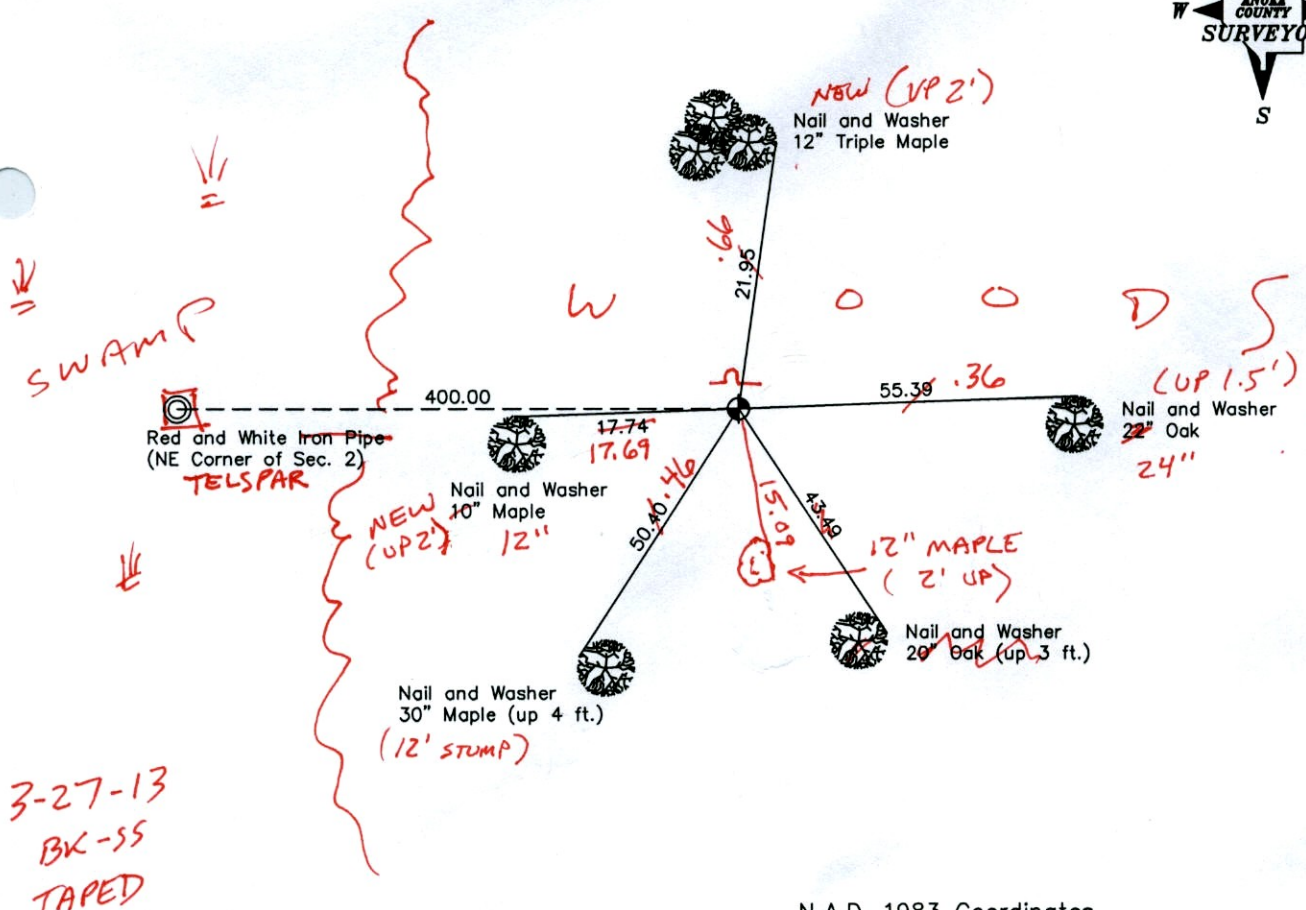 ANOKA
W COUNTY
SURVEYO
S
NEW (UP 2')
Nail and Washer
12" Triple Maple
.66
21.95
SWAMP
W O O D S
400.00
55.39 .36
(UP 1.5')
Nail and Washer
22" Oak
24"
Red and White Iron Pipe
(NE Corner of Sec. 2)
TELSPAR
17.74
17.69
NEW
(UP 2')
Nail and Washer
10" Maple
12"
50.40 .46
15.09
43.49
12" MAPLE
(2' UP)
Nail and Washer
20" Oak (up 3 ft.)
Nail and Washer
30" Maple (up 4 ft.)
(12' STUMP)
3-27-13
BK-SS
TAPED
N.A.D. 1983 Coordinates